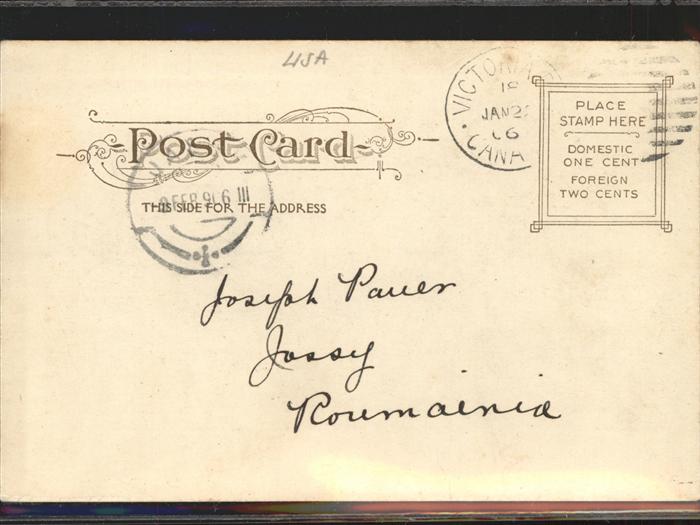 USA
VICTORIA
JAN 2
06
CANA
PLACE
STAMP HERE
DOMESTIC
ONE CENT
FOREIGN
TWO CENTS
Post Card
THIS SIDE FOR THE ADDRESS
FEB 906 III
Joseph Pauer
Jassy
Roumainia